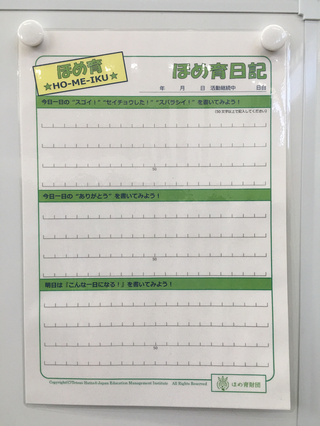 ほめ育
★HO-ME-IKU★
ほめ育日記
年 月 日 活動継続中 日目
今日一日の“スゴイ！”“セイチョウした！”“スバラシイ！”を書いてみよう！
50
今日一日の“ありがとう”を書いてみよう！
50
明日は『こんな一日になる！』を書いてみよう！
50
All Rights Reserved
ほめ育財団